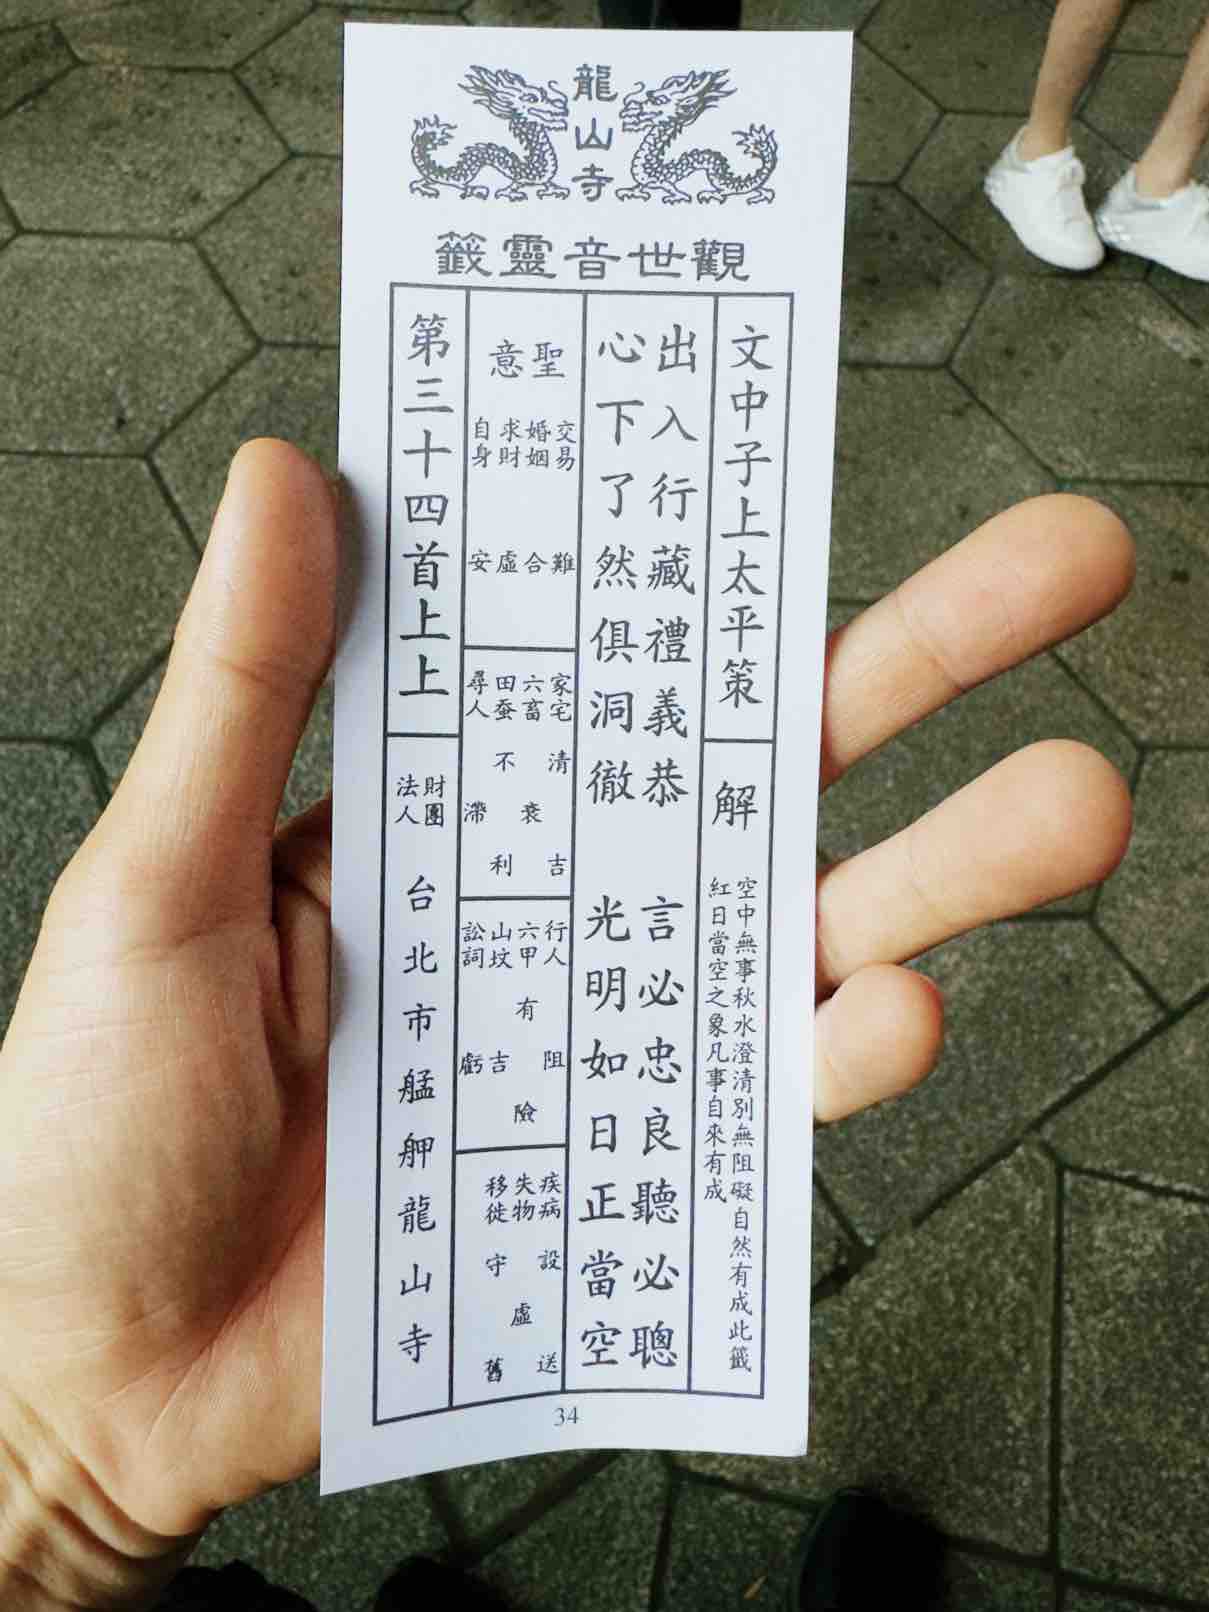 龍山寺
觀世音靈籤
文中子上太平策
解
空中無事秋水澄清別無阻礙自然有成此籤
紅日當空之象凡事自來有成
出入行藏禮義恭 言必忠良聽必聰
心下了然俱洞徹 光明如日正當空
聖意
交易 難
婚姻 合
求財 虛
自身 安
家宅 清吉
六畜 衰
田蚕 不利
尋人 滯
行人 阻
六甲 有險
山坟 吉
訟詞 虧
疾病 設送
失物 虛
移徙 守舊
第三十四首上上
財團法人
台北市艋舺龍山寺
34